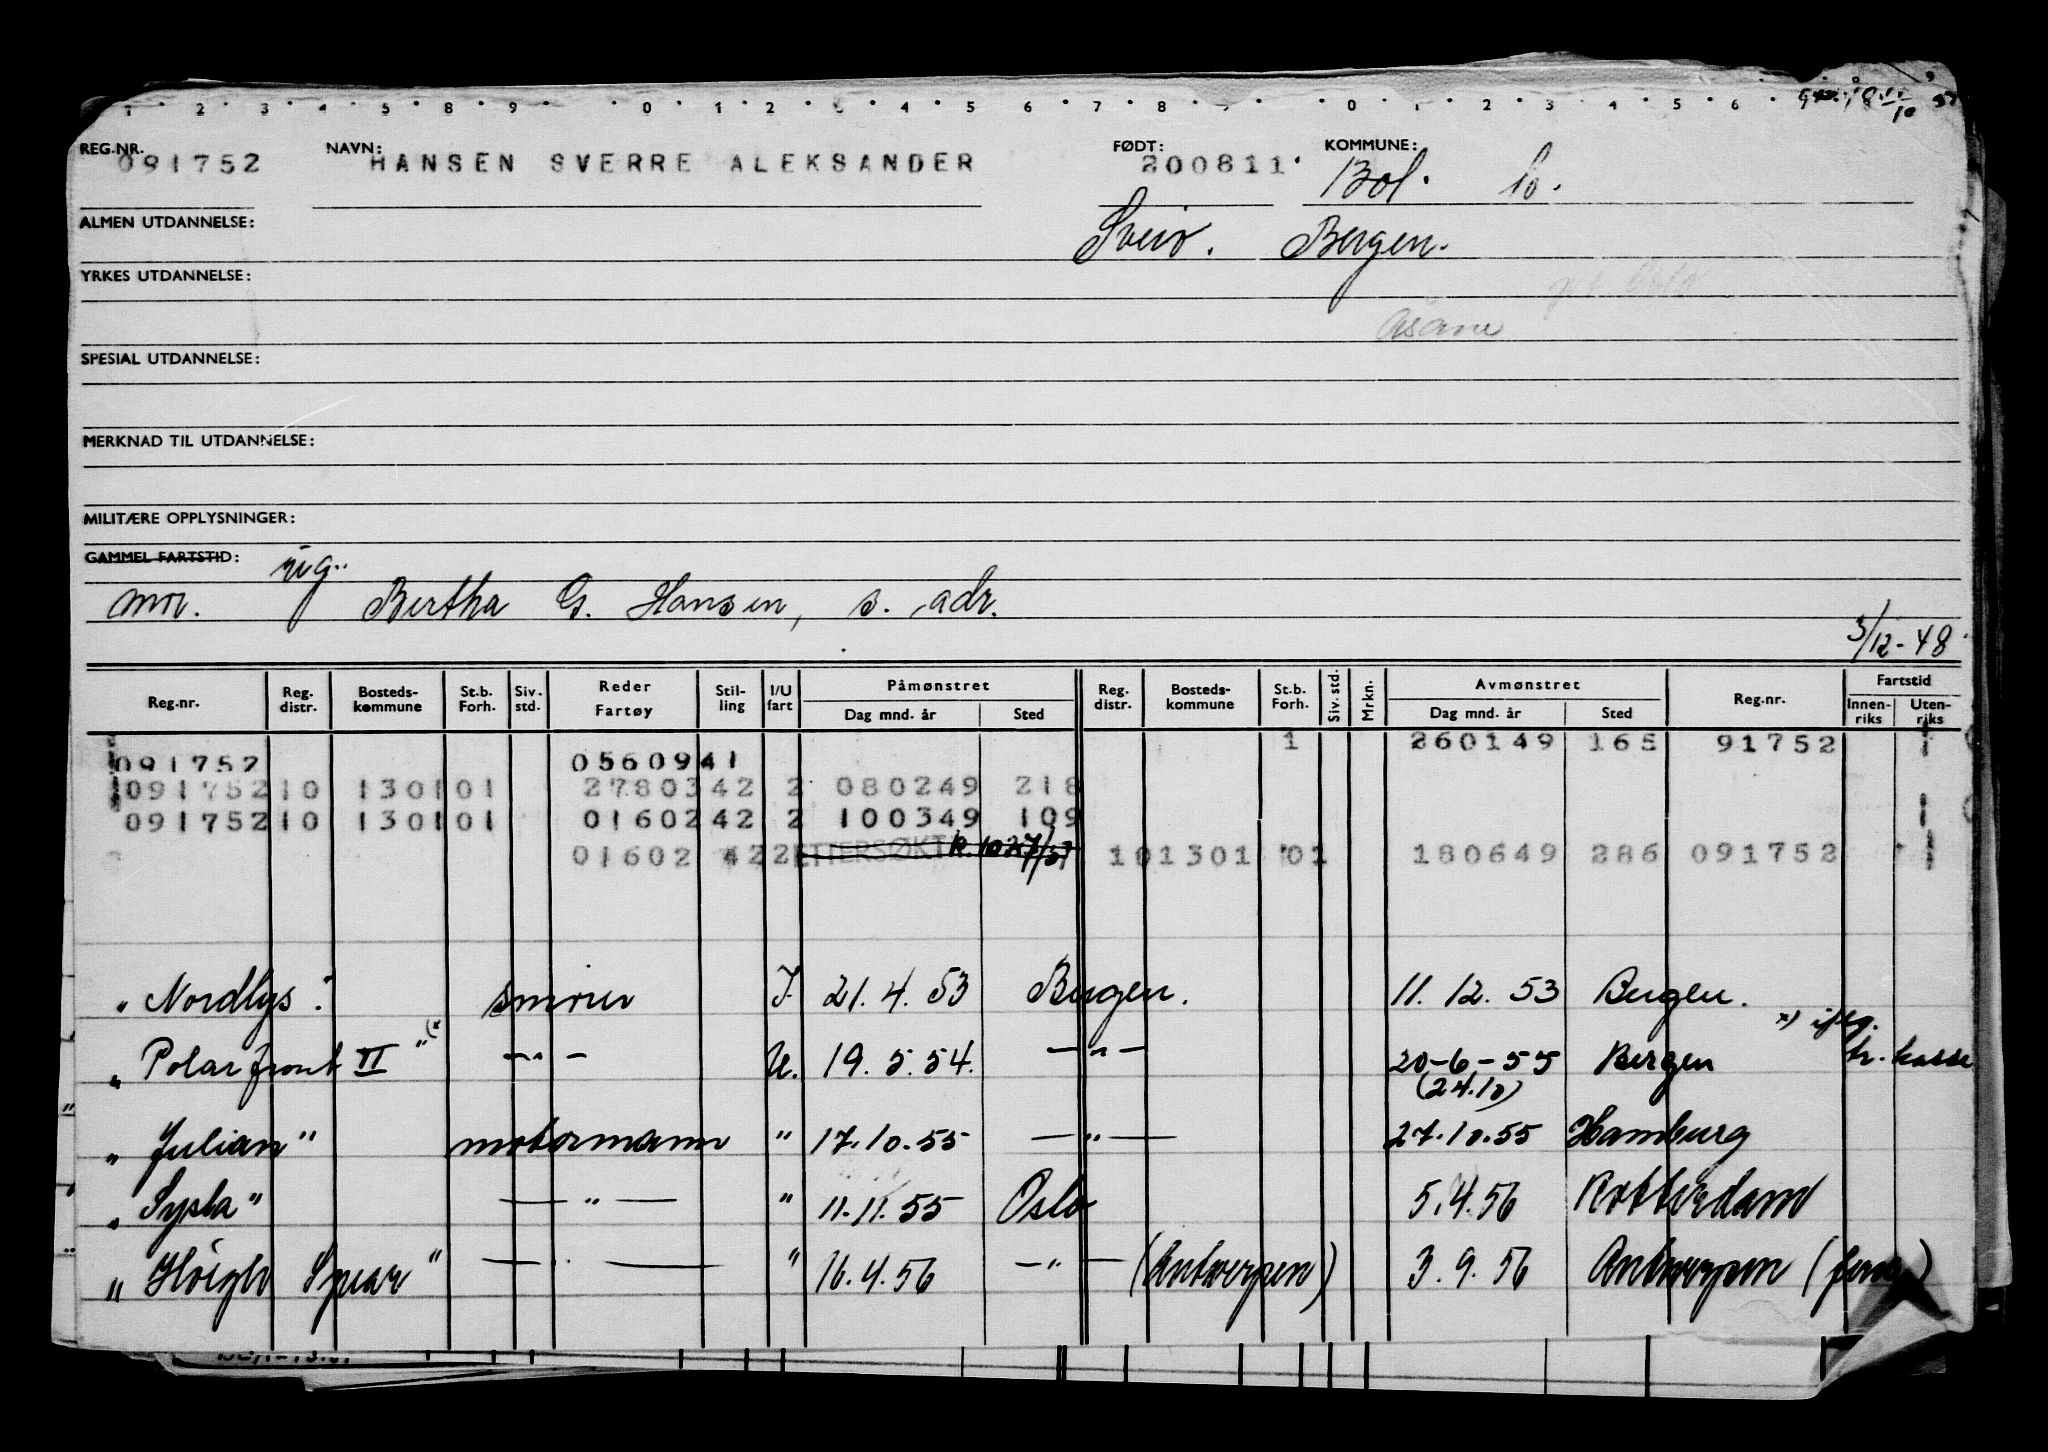 1 · 2 · 3 · 4 · 5 · 8 · 9 · 0 · 1 · 2 · 3 · 4 · 5 · 6 · 7 · 8 · 0 · 1 · 2 · 3 · 4 · 5 · 6 · 9
REG.NR. 091752 NAVN: HANSEN SVERRE ALEKSANDER FØDT: 200811. KOMMUNE: Bof. lo.
ALMEN UTDANNELSE: Sveio. Bergen.
YRKES UTDANNELSE:
Åsane
SPESIAL UTDANNELSE:
MERKNAD TIL UTDANNELSE:
MILITÆRE OPPLYSNINGER:
GAMMEL FARTSTID: ug.
mor. Bertha G. Hansen, s. adr.
3/12-48
Reg.nr. Reg. distr. Bosteds-kommune St.b. Forh. Siv. std. Reder Fartøy Stil-ling I/U fart Påmønstret Dag mnd. år Sted Reg. distr. Bosteds-kommune St.b. Forh. Siv. std. Mrkn. Avmønstret Dag mnd. år Sted Reg.nr. Fartstid Innen-riks Uten-riks
1 260149 165 91752 1
091752 0560941
091752 10 1301 01 27803 42 2 080249 218
091752 10 1301 01 01602 42 2 100349 109 1
01602 42 2 ETTERSØKT 10 1301 01 180649 286 091752 1
"Nordlys" smører I 21.4.53 Bergen. 11.12.53 Bergen.
"Polarfront II" (x —"— U. 19.5.54. —"— 20-6-55 Bergen tr. kasse
(24.10)
"Julian" motormann " 17.10.55 —"— 27.10.55 Hamburg
"Sysla" —"— " 11.11.55 Oslo 5.4.56 Rotterdam
"Høegh Spear" —"— " 16.4.56 —"— (Antwerpen) 3.9.56 Antwerpen